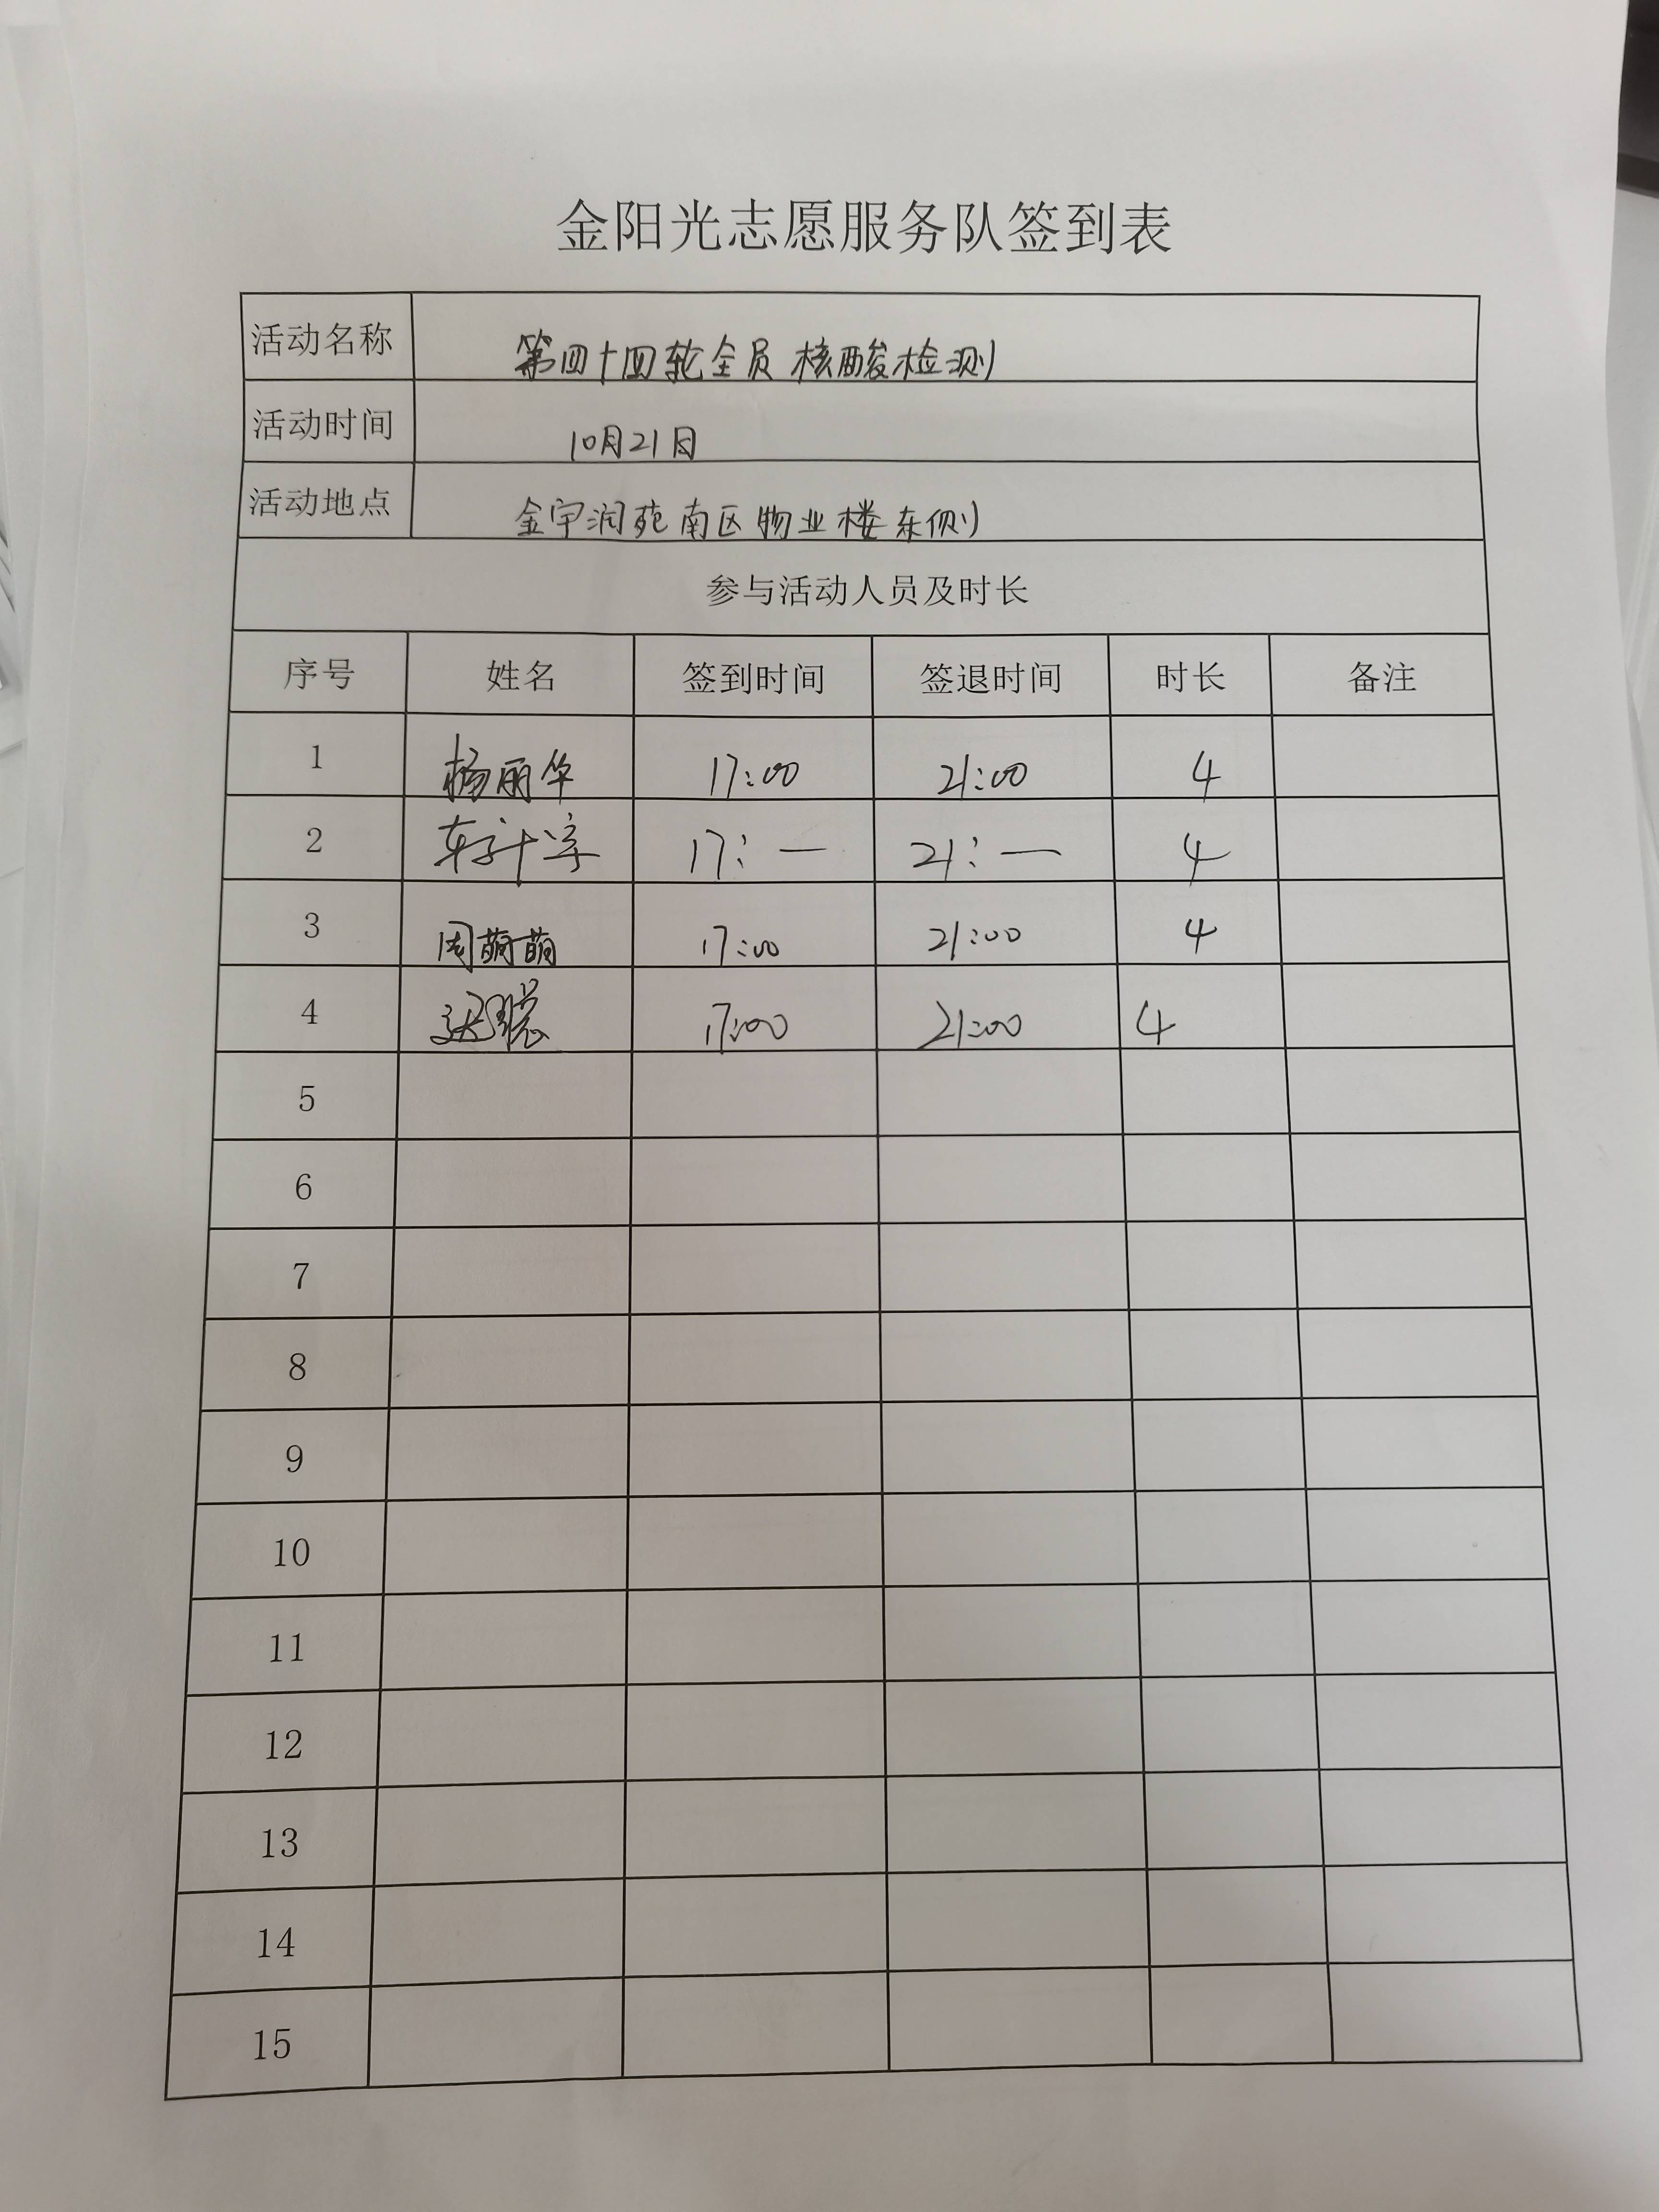 金阳光志愿服务队签到表
活动名称 第四十四轮全员核酸检测
活动时间 10月21日
活动地点 金宇润苑南区物业楼东侧
参与活动人员及时长
序号 姓名 签到时间 签退时间 时长 备注
1 杨丽华 17:00 21:00 4
2 17:一 21:一 4
3 周萌萌 17:00 21:00 4
4 17:00 21:00 4
5
6
7
8
9
10
11
12
13
14
15